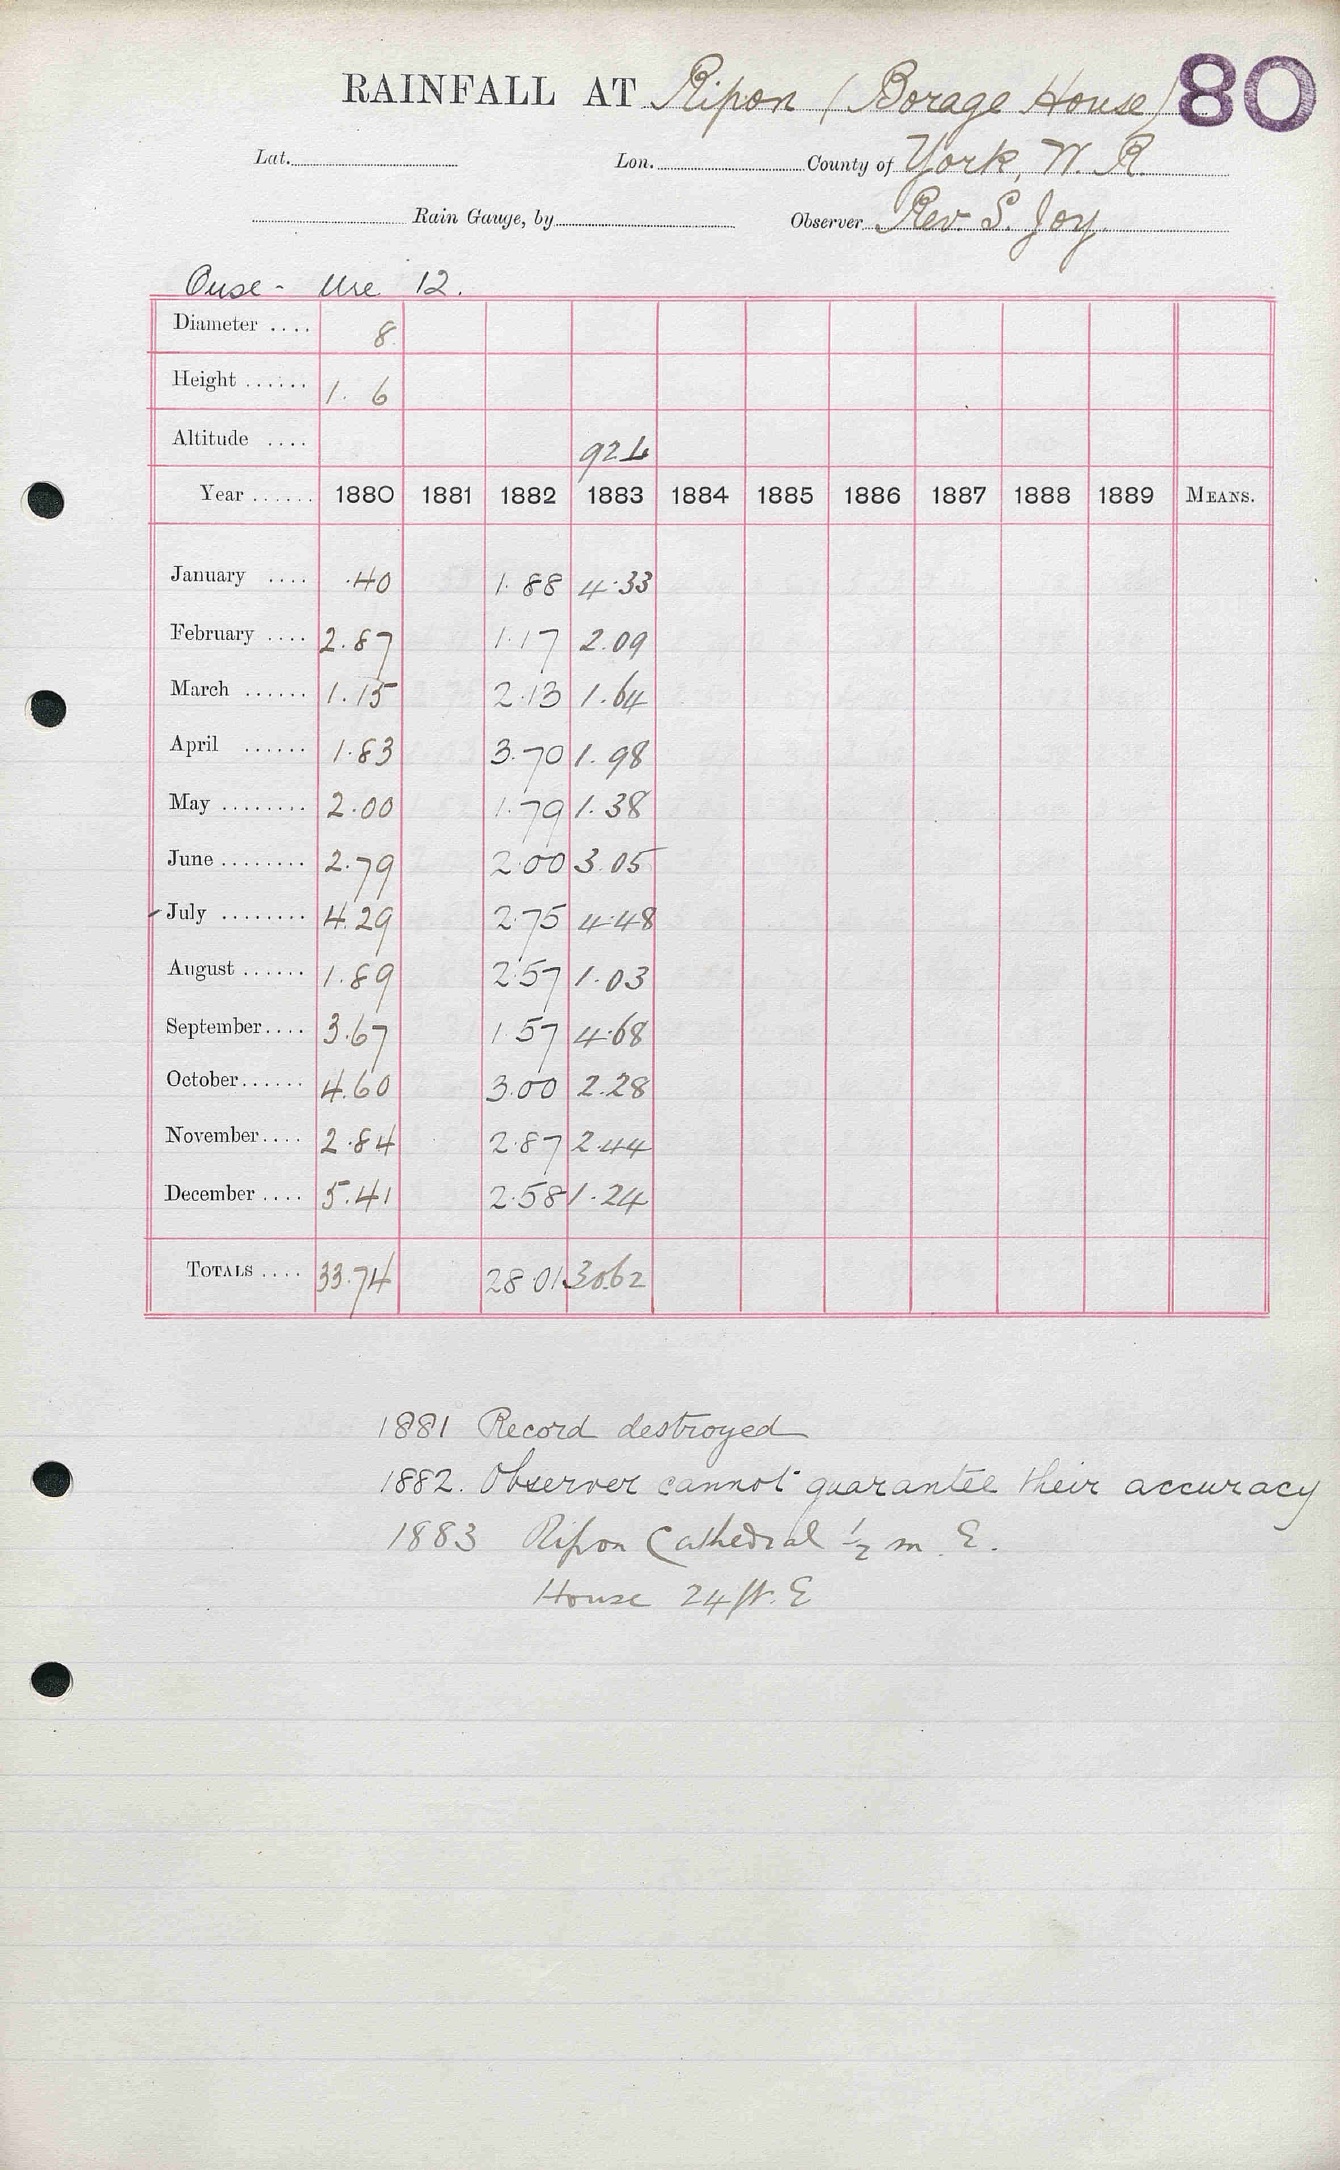 RAINFALL AT Ripon (Borage House) 80
Lat. Lon. County of York, W. R.
Rain Gauge, by Observer Rev. S. Joy.
Ouse - Ure 12.
Diameter .... 8
Height ...... 1. 6
Altitude .... 92 L
Year ...... 1880 1881 1882 1883 1884 1885 1886 1887 1888 1889 MEANS.
January .... .40 1.88 4.33
February .... 2.87 1.17 2.09
March ...... 1.15 2.13 1.64
April ...... 1.83 3.70 1.98
May ........ 2.00 1.79 1.38
June ........ 2.79 2.00 3.05
July ........ 4.29 2.75 4.48
August ...... 1.89 2.57 1.03
September .... 3.67 1.57 4.68
October ...... 4.60 3.00 2.28
November .... 2.84 2.87 2.44
December .... 5.41 2.58 1.24
TOTALS .... 33.74 28.01 30.62
1881 Record destroyed
1882. Observer cannot guarantee their accuracy
1883 Ripon Cathedral ½ m. E.
House 24 ft. E